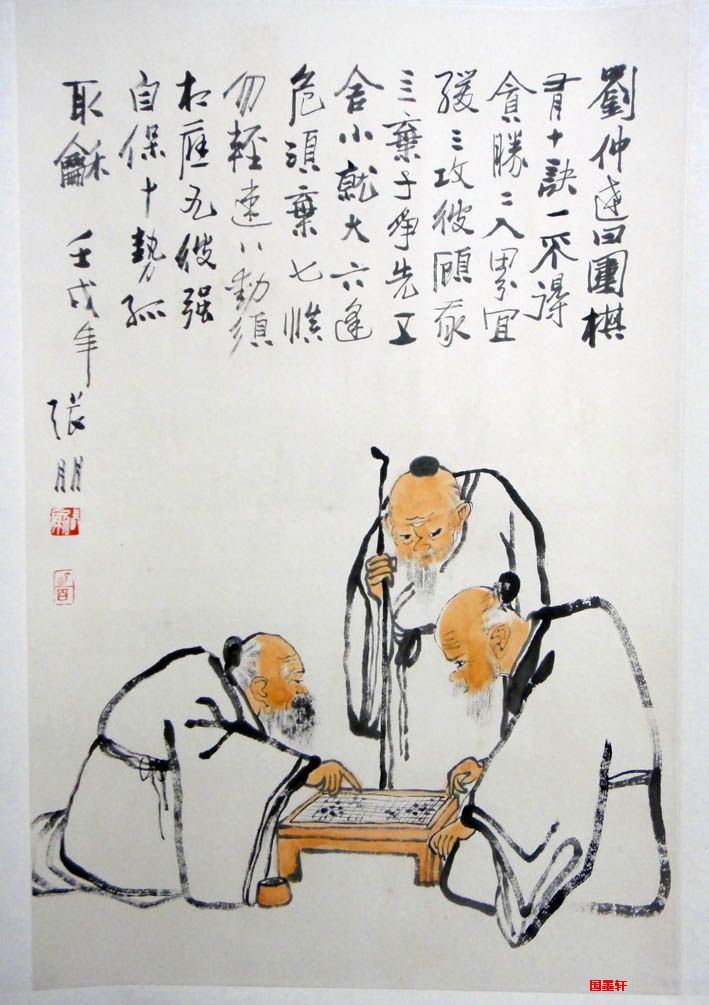 劉仲達曰圍棋
有十訣一不得
貪勝二入界宜
緩三攻彼顧我
三棄子爭先五
舍小就大六逢
危須棄七慎
勿輕速八動須
相應九彼强
自保十勢孤
取龢 壬戌年
張朋
国墨轩